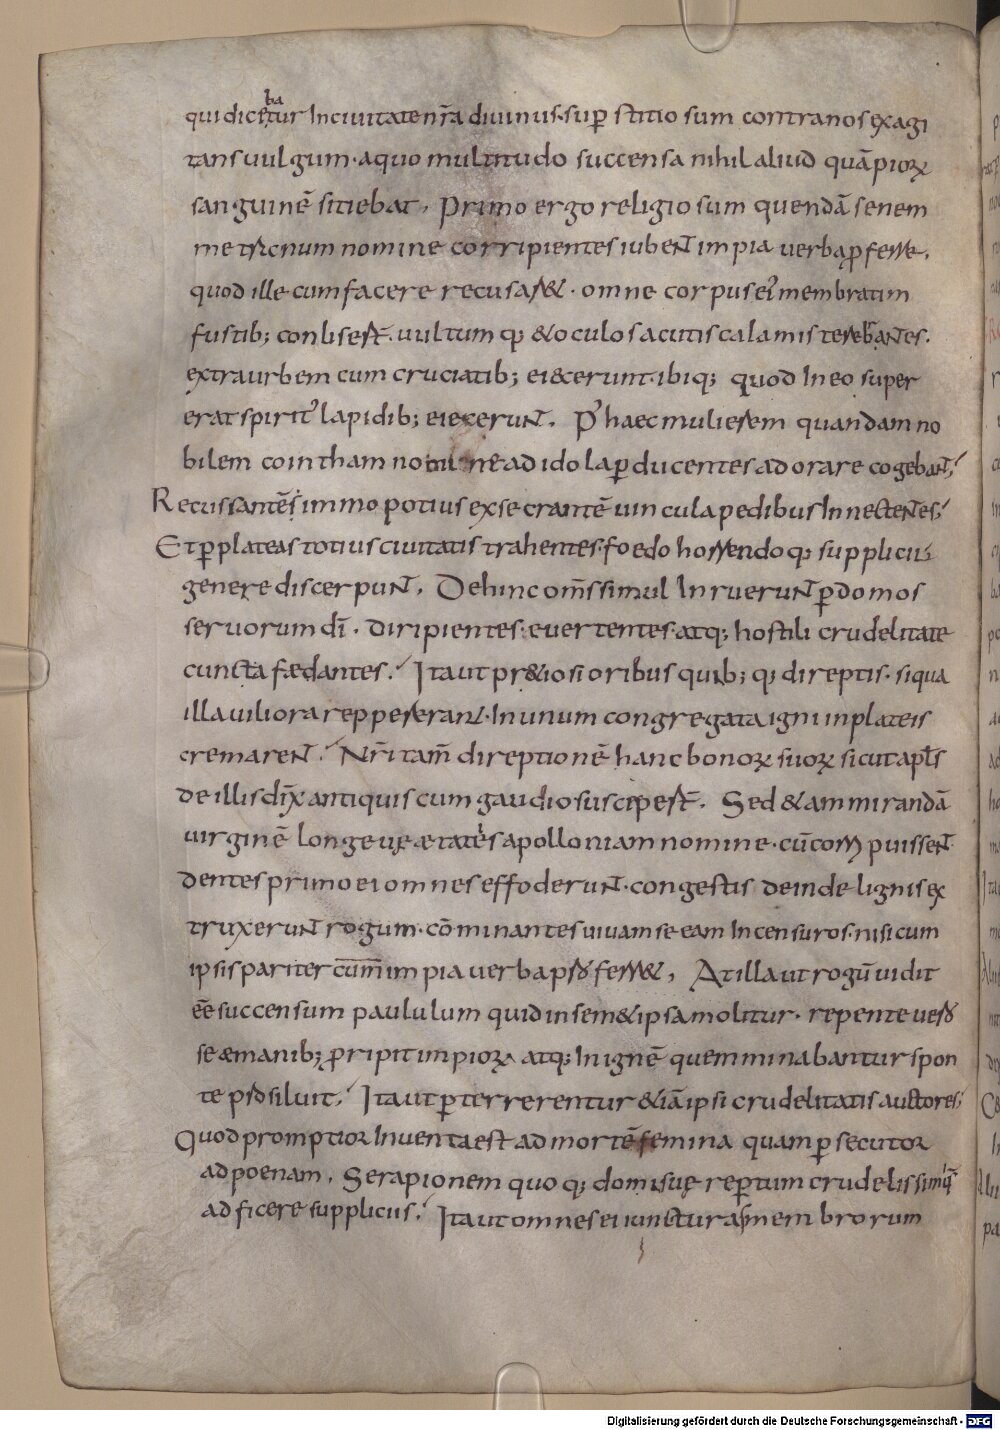 qui dicebatur In ciuitate nr̄a diuinus. sup̲ stitio sum contra nos exagi
tans uulgum. a quo multitudo succensa nihil aliud quā pioꝝ
sanguinē sitiebat. Primo ergo religiosum quendā senem
metrcnum nomine corripientes iubent impia uerba ꝓferre.
quod ille cum facere recusar&. omne corpus ei' membratim
fustib; conlisert. uultumq; & oculos acutis calamis terebrantes.
extra urbem cum cruciatib; eiecerunt. ibiq; quod In eo super
erat spirit' lapidib; eiecerunt. P' haec mulierem quandam no
bilem cointham nomine ad idola ꝑducentes adorare cogebant;
Recussantē immo potius exsecrantē uincula pedibus Innectentes;
Et ꝑ plateas totius ciuitatis trahentes. foedo horrendoq; supplicii
genere discerpunt. Dehinc om̄s simul Inruerunt ꝑ domos
seruorum dī. diripientes. euertentes. atq; hostili crudelitate
cuncta fædantes. Ita ut pr&iosioribus quib;q; direptis. siqua
illa uiliora reppererant. In unum congregata igni in plateis
cremarent. Nr̄i tam̄ direptionē hanc bonoꝝ suoꝝ sicut apl̄s
de illis dīx antiquis cum gaudio suscepert. Sed & ammirandā
uirginē longeuę ætatis apolloniam nomine. cū com puissent
dentes primo ei omnes effoderunt. congestis deinde lignis ex
truxerunt rogum. cōminantes uiuam se eam Incensuros. nisi cum
ipsis pariter cum im pia uerba pro ferr&, At illa ut rogū uidit
ēē succensum paululum quid in sem&ipsa molitur. repente uero
se æ manib; ꝓripit impioꝝ atq; In ignē quem minabantur spon
te prosiluit; Ita ut ꝑterrerentur & iā ipsi crudelitatis auctores;
Quod promptior Inuenta est ad mortē femina quam ꝑsecutor
ad poenam. Serapionem quoq; domi suę reꝑtum crudelissimisq;
adficere suppliciis; Ita ut omnes ei iuncturas membrorum
Digitalisierung gefördert durch die Deutsche Forschungsgemeinschaft - DFG